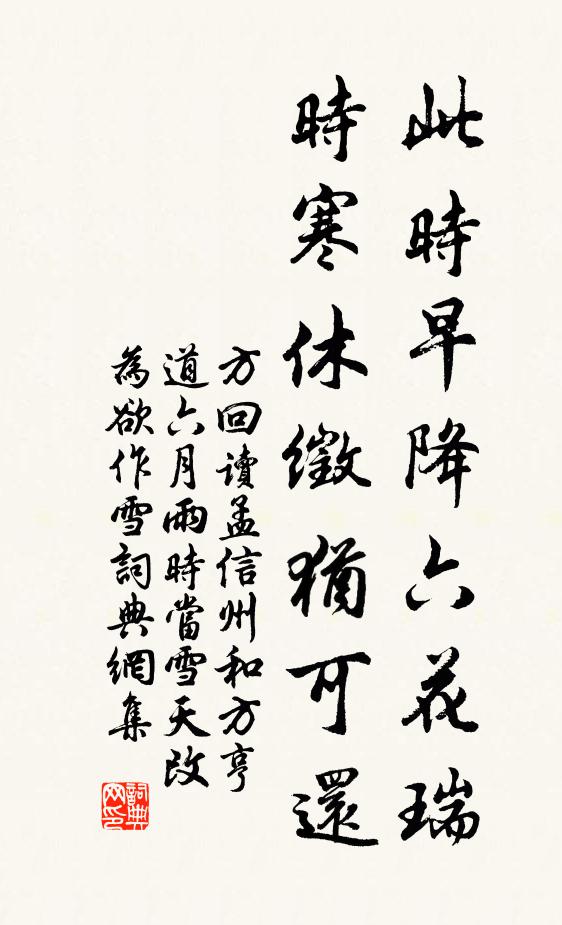 此時早降六花瑞
時寒休徵猶可還
方回讀孟信州和方亨
道六月雨時當雪天改
為欲作雪詞典網集
詞典
网印